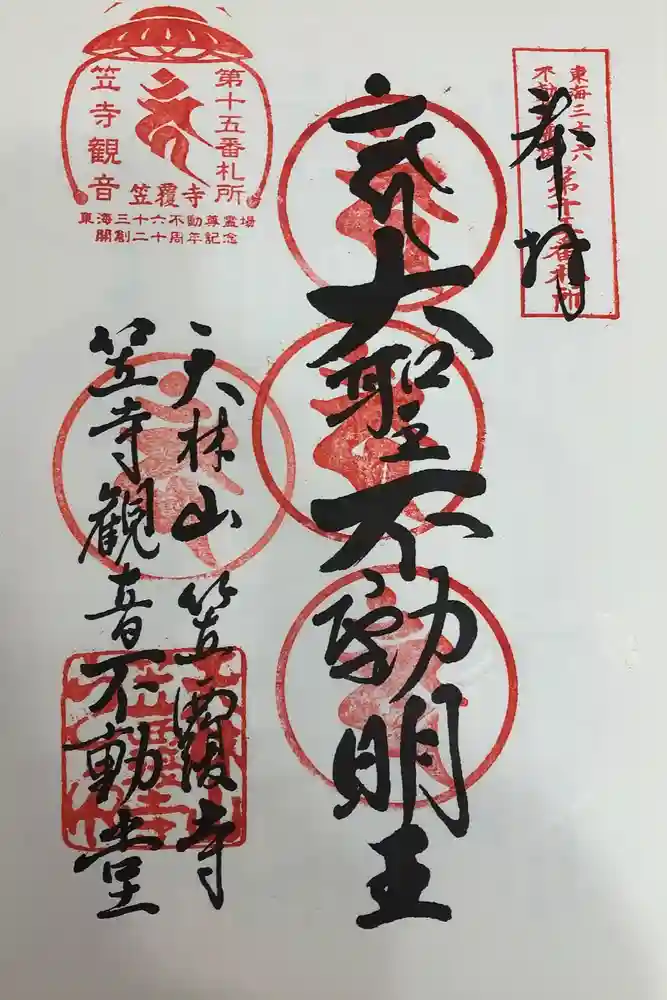 東海三十六
不動尊霊場
第十五番札所
奉拝
大聖不動明王
天林山 笠覆寺
笠寺観音不動堂
第十五番札所
笠寺観音
笠覆寺
東海三十六不動尊霊場
開創二十周年記念